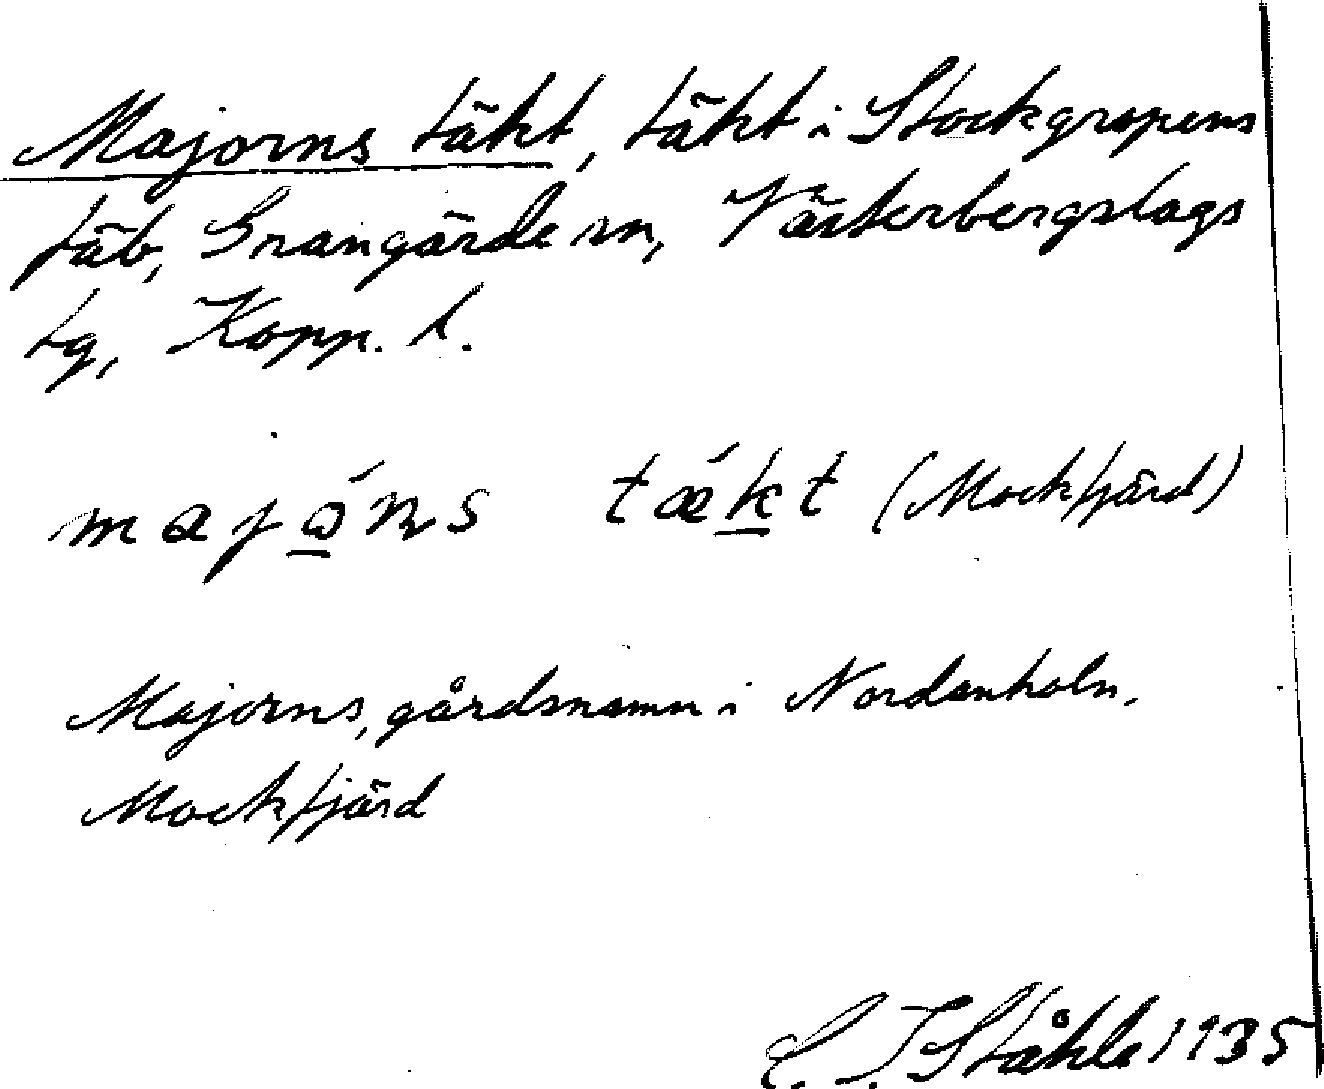 Majorns täkt, täkt i Stockgropens
fäb, Grangärde sn, Västerbergslags
tg, Kopp. l.
majǫ́ns tǽk̲t (Mockfjärd)
Majorns, gårdsnamn i Nordanholn,
Mockfjärd
C. I. Ståhle 1935